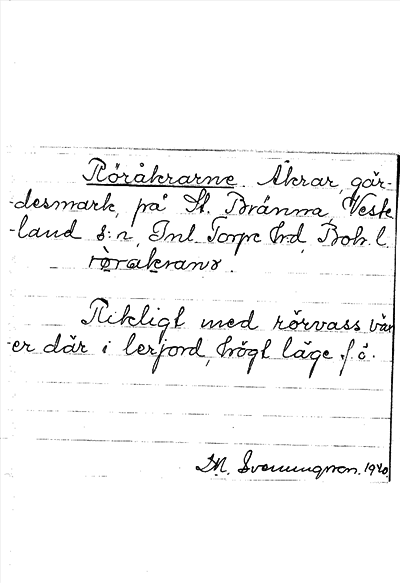 Röråkrarne. Åkrar, går-
-desmark, på St. Bränna, Veste
-land s:n, Inl. Torpe hrd, Boh. l.
rö̀rakranɤ.
Rikligt med rörvass väx
-er där i lerjord, högt läge f. ö.
M. Svenungson. 1940.